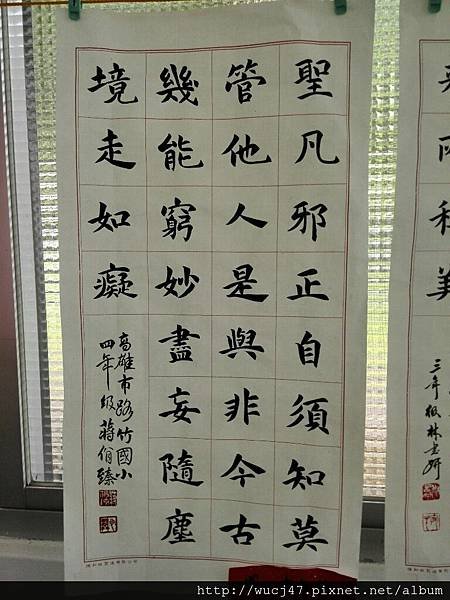 聖凡邪正自須知莫
管他人是與非今古
幾能窮妙盡妄隨塵
境走如癡
高雄市路竹國小
四年級蔣俏臻
三年級林
http://wucj47.pixnet.net/album